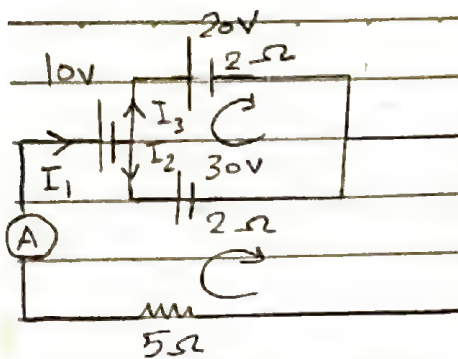 20V
2Ω
10V
I3
I2
30V
I1
2Ω
A
5Ω